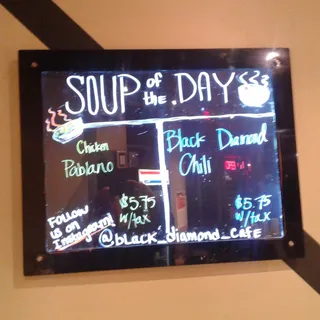 SOUP of the DAY
Chicken
Pablano
$5.75
w/tax
Black Diamond
Chili
$5.75
w/tax
Follow
us on
Instagram!
@black_diamond_cafe